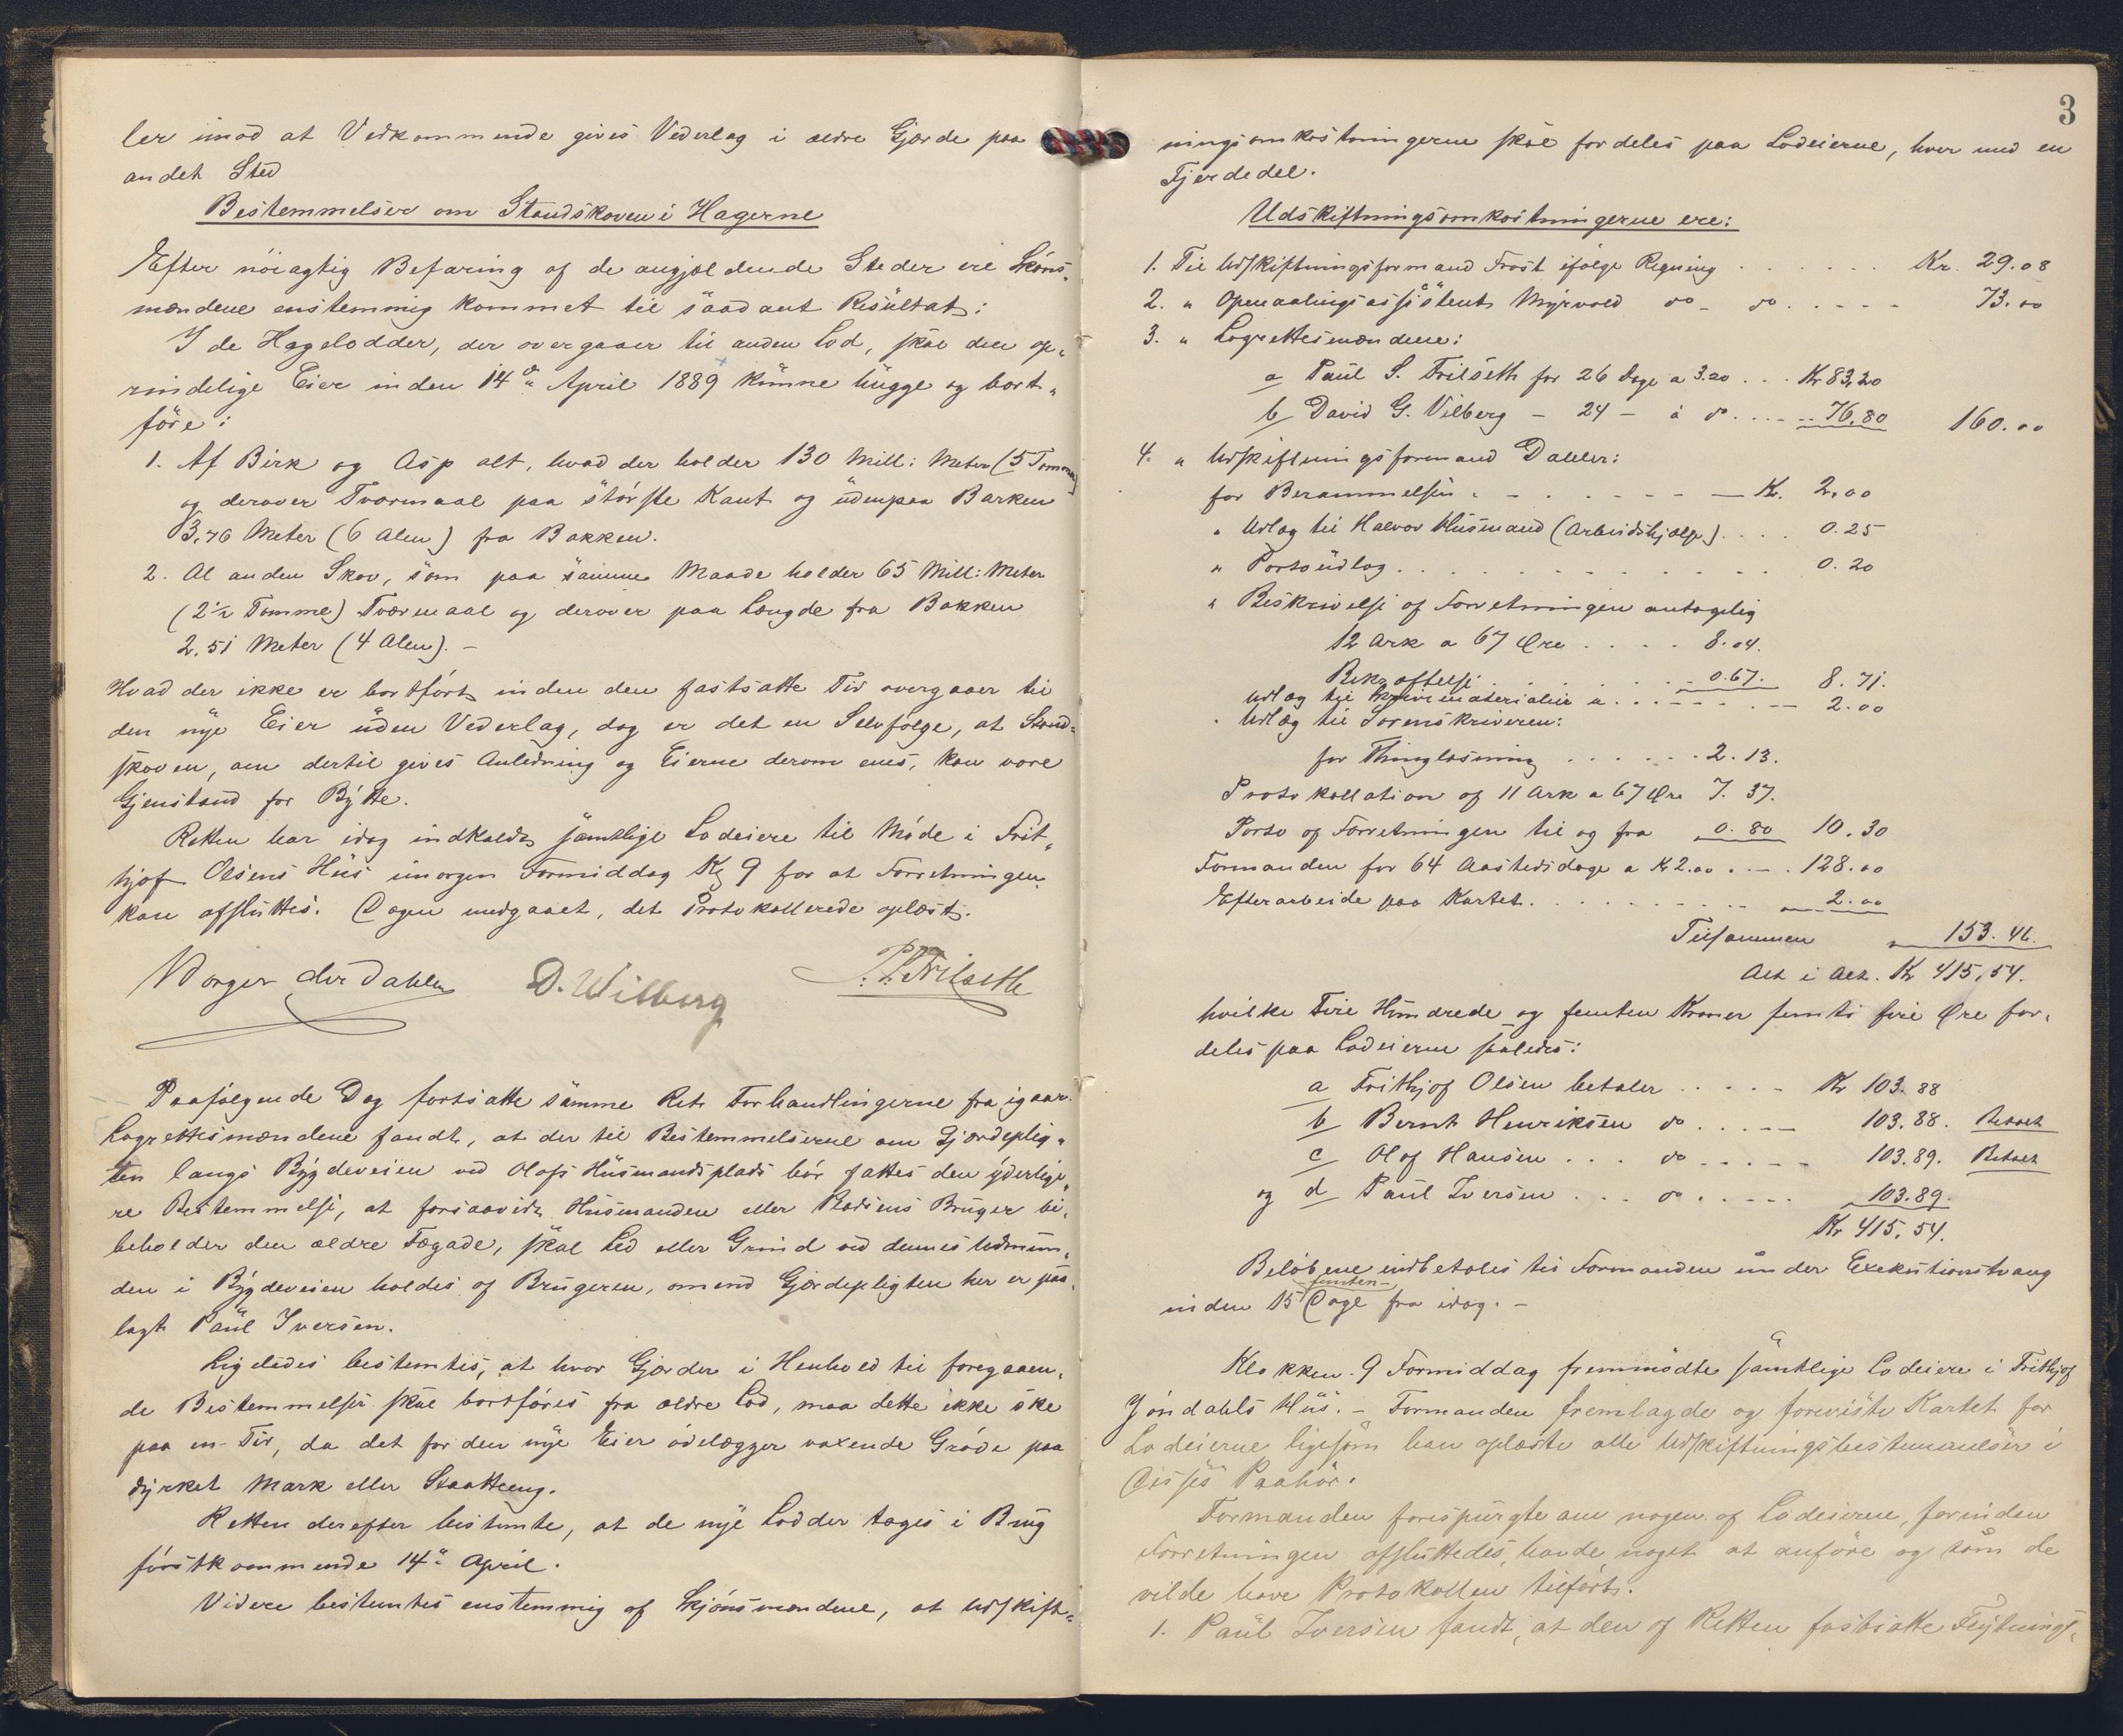 ler imod at Vedkommende gives Vederlag i ældre Gjærde paa
andet Sted
Bestemmelser om Standskoven i Hagerne
Efter nöiagtig Befaring af de angjældende Steder ere Skjöns-
mændene enstemmig kommet til saadant Resultat:
I de Hagelodder, der overgaaer til anden Lod, skal den op-
rindelige Eier inden 14de April 1889 kunne hugge og bort-
före:
1. Af Birk og Asp alt, hvad der holder 130 Mill: Meter (5 Tommer)
og derover Tværmaal paa störste Kant og udenpaa Barken
3,76 Meter (6 Alen) fra Bakken.
2. Al anden Skov, som paa samme Maade holder 65 Mill: Meter
(2 1/2 Tomme) Tværmaal og derover paa Længde fra Bakken
2.51 Meter (4 Alen). -
Hvad der ikke er bortfört inden den fastsatte Tid overgaaer til
den nye Eier uden Vederlag, dog er det en Selvfölge, at Stand-
skoven, om dertil gives Anledning og Eierne derom enes, kan være
Gjenstand for Bytte.
Retten har idag indkaldt samtlige Lodeiere til Möde i Frit-
hjof Olsens Hus imorgen Formiddag Kl 9 for at Forretningen
kan afsluttes. Dagen medgaaet, det Protokollerede oplæst.
Borger Dahler D. Wilberg P. Trilseth
Paafölgende Dag fortsatte samme Ret Forhandlingerne fra igaar.
Lagrettesmændene fandt, at der til Bestemmelserne om Gjærdeplig-
ten langs Bygdeveien ved Olafs Husmandsplads bör fattes den yderlige-
re Bestemmelse, at forsaavidt Husmanden eller Pladsens Bruger bi-
beholder den ældre Fægade, skal Led eller Grind ved dennes Udmun-
den i Bygdeveien holdes af Brugeren, omend Gjærdepligten her er paa-
lagt Paul Iversen.
Ligeledes bestemtes, at hvor Gjærder i Henhold til foregaaen-
de Bestemmelser skal bortföres fra ældre Lod, maa dette ikke ske
paa en Tid, da det for den nye Eier ödelægger voxende Gröde paa
dyrket Mark eller Slaatteeng.
Retten derefter bestemte, at de nye Lodder tages i Brug
förstkommende 14de April.
Videre bestemtes enstemmig af Skjönsmændene, at Udskift-
3
ningsomkostningerne skal fordeles paa Lodeierne, hver med en
Fjerdedel.
Udskiftningsomkostningerne ere:
1. Til Udskiftningsformand Frost ifölge Regning . . . . . . Kr. 29.08
2. " Opmaalingsassistent Myrvold do - do . . . . . 73.00
3. " Lagrettesmændene:
a Paul S. Trilseth for 26 Dage a 3.20 . . . Kr 83,20
b David G. Vilberg - 24 - à do . . . . 76,80 160.00
4. " Udskiftningsformand Dahler:
for Berammelsen . . . . . . . Kr. 2,00
" Udlæg til Halvor Husmand (Arbeidshjælp) . . . . 0.25
" Portoudlæg . . . . . . . . . . . 0.20
" Beskrivelse af Forretningen antagelig
12 Ark a 67 Øre . . . . 8.04.
Bekræftelse . . . . . . . 0.67. 8.71.
Udlæg til Skrivematerialier a . . . . . . 2.00
" Udlæg til Sorenskriveren:
for Thinglæsning . . . . . . 2.13.
Protokollation af 11 Ark a 67 Øre 7.37.
Porto af Forretningen til og fra 0.80 10.30
Formanden for 64 Aastedsdage a Kr 2.00 . . . 128.00
Efterarbeide paa Kartet . . . . . . . . . 2.00
Tilsammen 153.46.
Alt i Alt. Kr 415,54.
hvilke Fire Hundrede og femten Kroner femti fire Øre for-
deles paa Lodeierne saaledes:
a Frithjof Olsen betaler . . . . . Kr 103.88
b Bernt Henriksen do . . . . 103.88. Betalt
c Olof Hansen . . . do . . . . . 103.89. Betalt
og d Paul Iversen . . . do . . . . . 103.89.
Kr 415,54.
Belöbene indbetales til Formanden under Exekutionstvang
femten
inden 15 Dage fra idag. -
Klokken 9 Formiddag fremmödte samtlige Lodeiere i Frithjof
Jöndahls Hus. - Formanden fremlagde og foreviste Kartet for
Lodeierne ligesom han oplæste alle Udskiftningsbestemmelser i
Disses Paahör.
Formanden forespurgte om nogen af Lodeierne, forinden
Forretningen afsluttedes, havde noget at anföre og som de
vilde have Protokollen tilfört.
1. Paul Iversen fandt, at den af Retten fastsatte Flytnings-